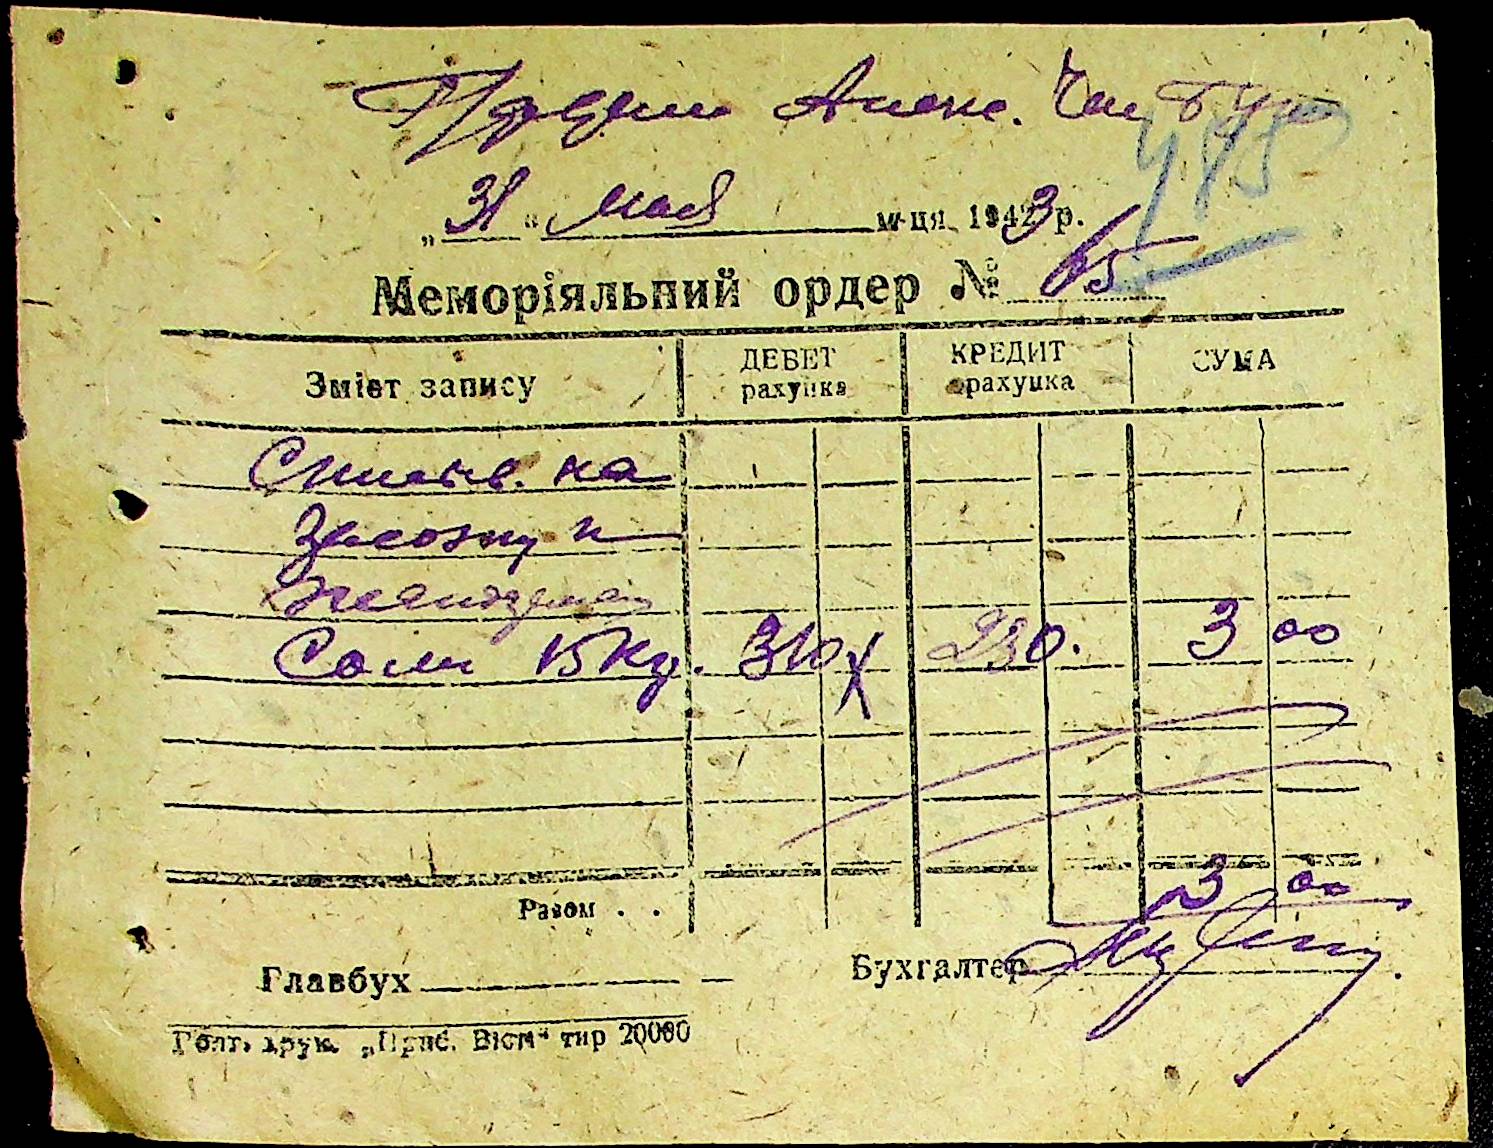 485
"31" мая м-ця 1943 р.
Меморіяльний ордер № 65
Зміст запису ДЕБЕТ рахунка КРЕДИТ рахунка СУМА
Списыв. на
Соли 15 кг. 310 230. 3 00
Разом . . 3 00
Главбух Бухгалтер
Голт. друк. „Приб. Вісті" тир 20000